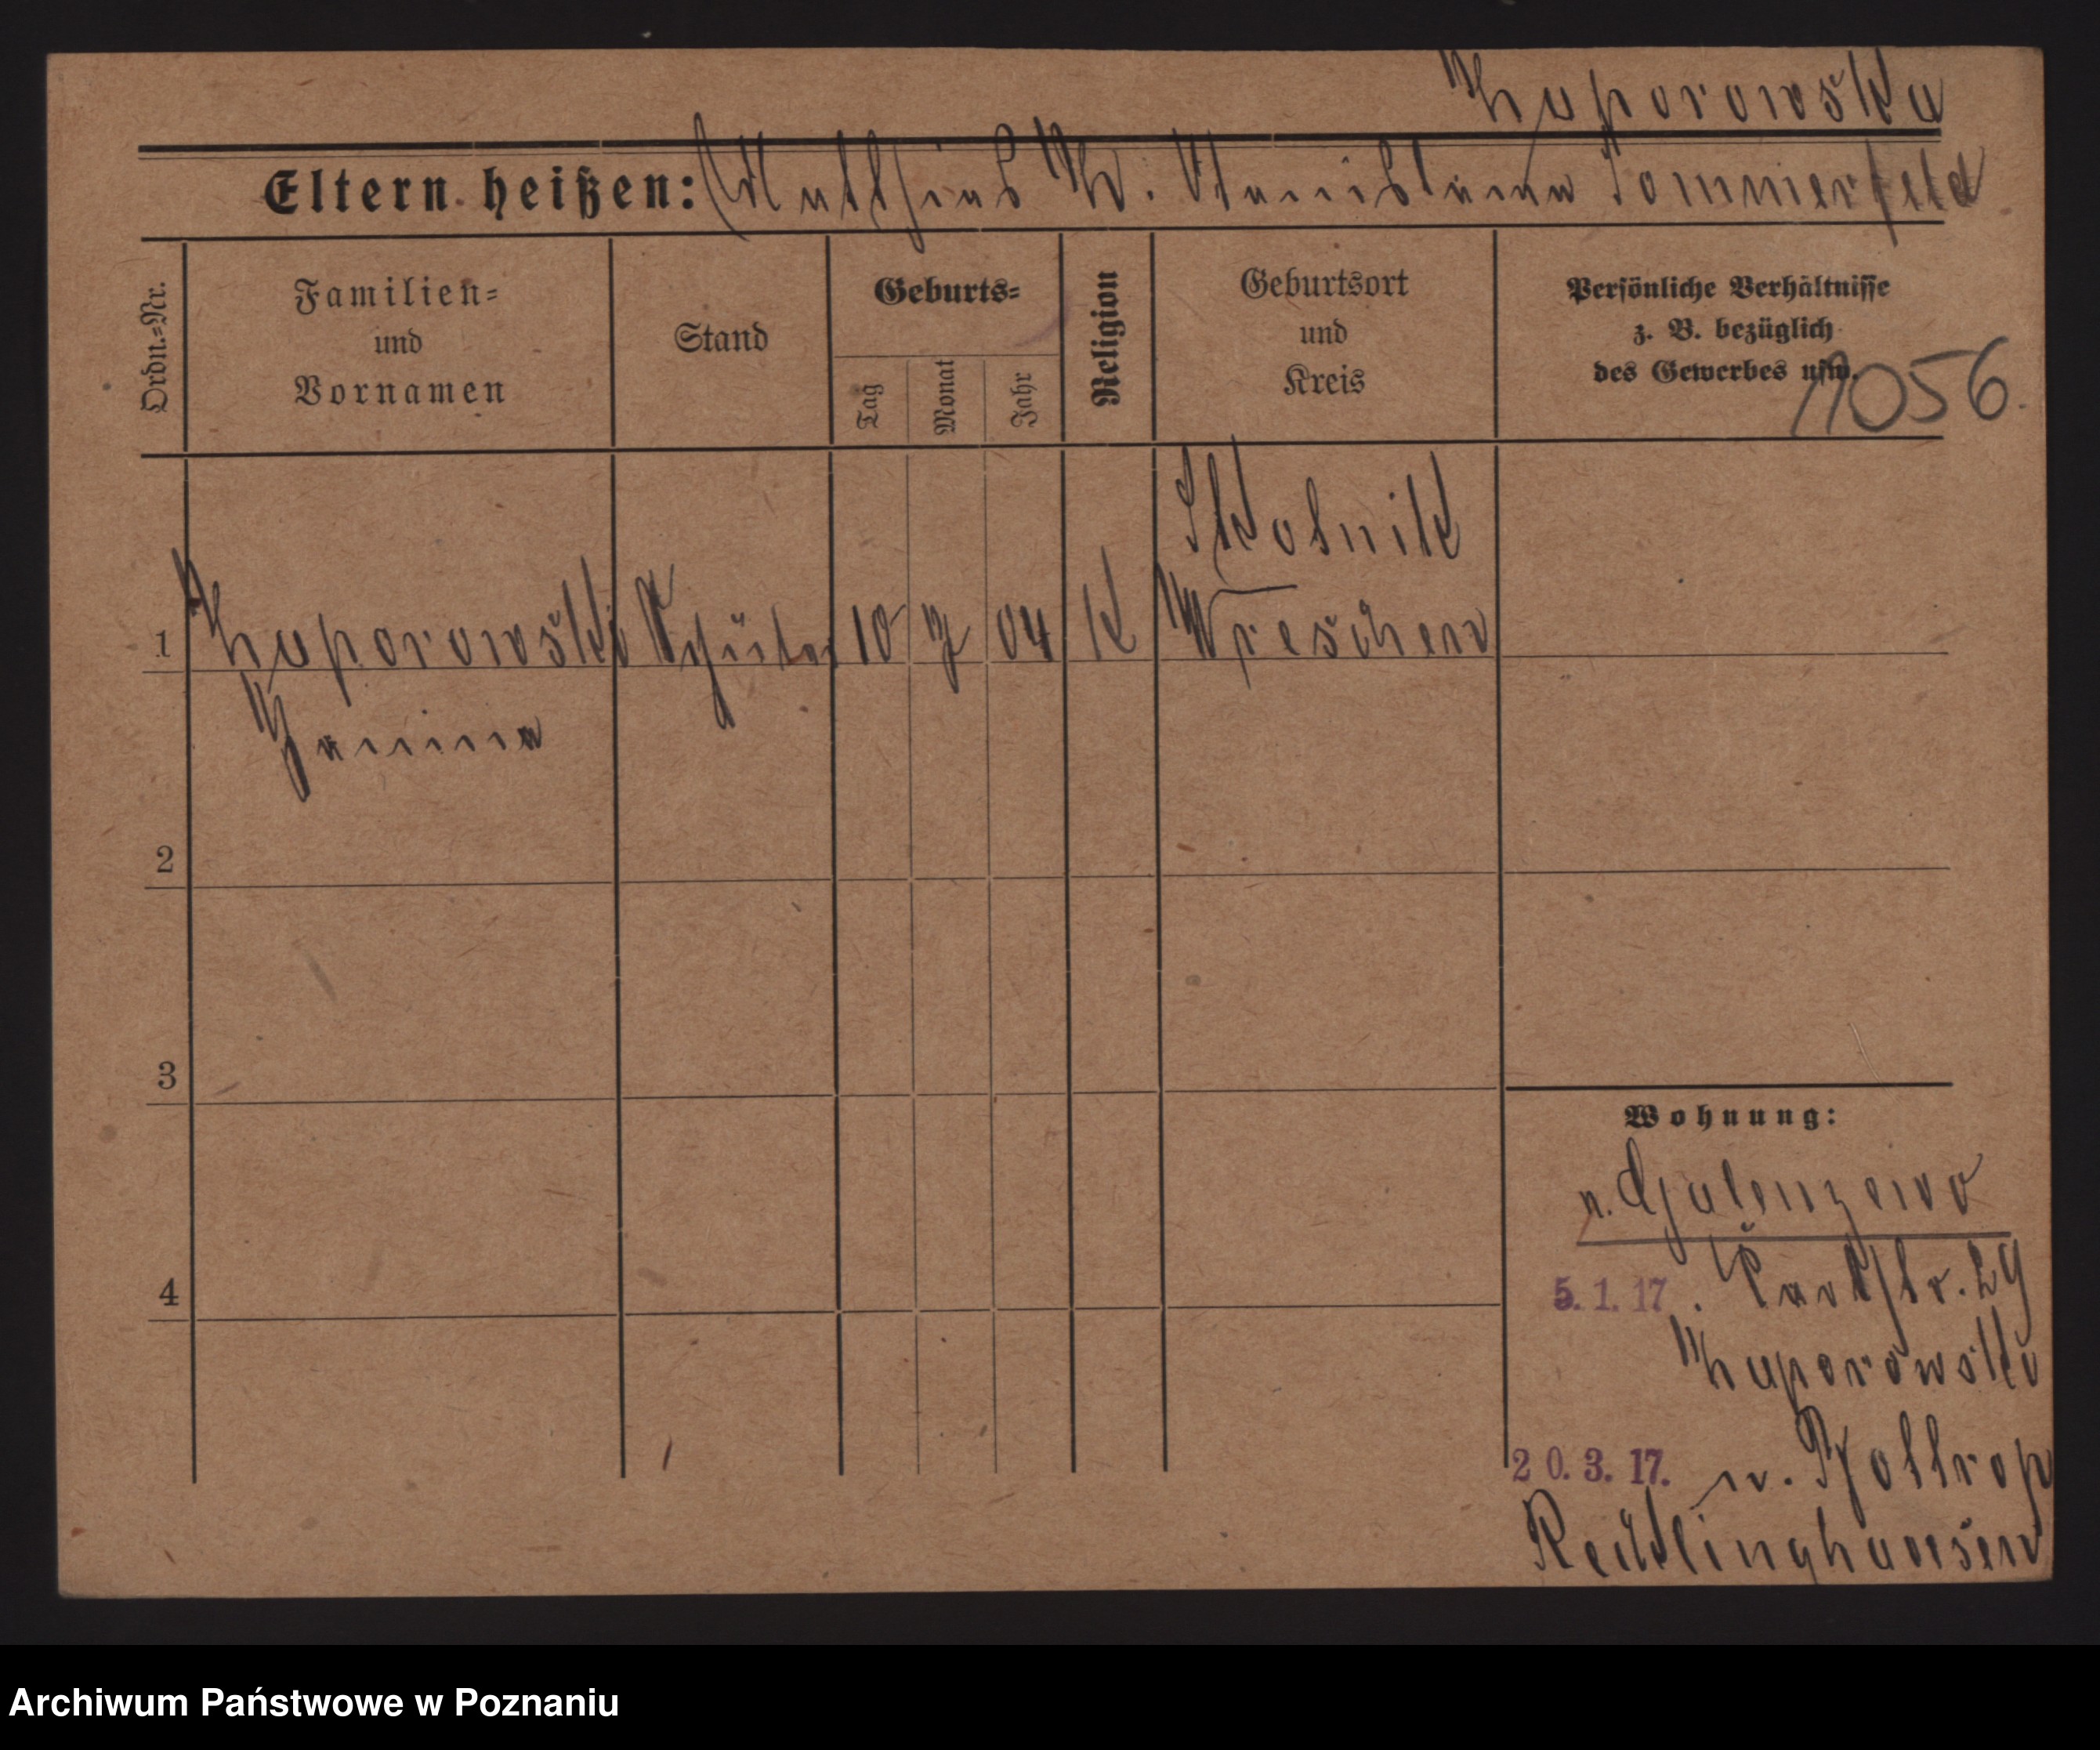 Kaporowska
Eltern heißen: Matthias K. u. Stanislawa Sommerfeld
Ordn.=Nr.
Familien=
und
Vornamen
Stand
Geburts=
Tag
Monat
Jahr
Religion
Geburtsort
und
Kreis
Persönliche Verhältnisse
z. B. bezüglich
des Gewerbes usw.
11056.
Skotnik
1 Kaporowski Schüler 10 7 04 K Wreschen
Janina
2
3
4
Wohnung:
n. Galenzewo
5. 1. 17. Parkstr. 29
Kaporowski
20. 3. 17. n. Bottrop
Recklinghausen
Archiwum Państwowe w Poznaniu